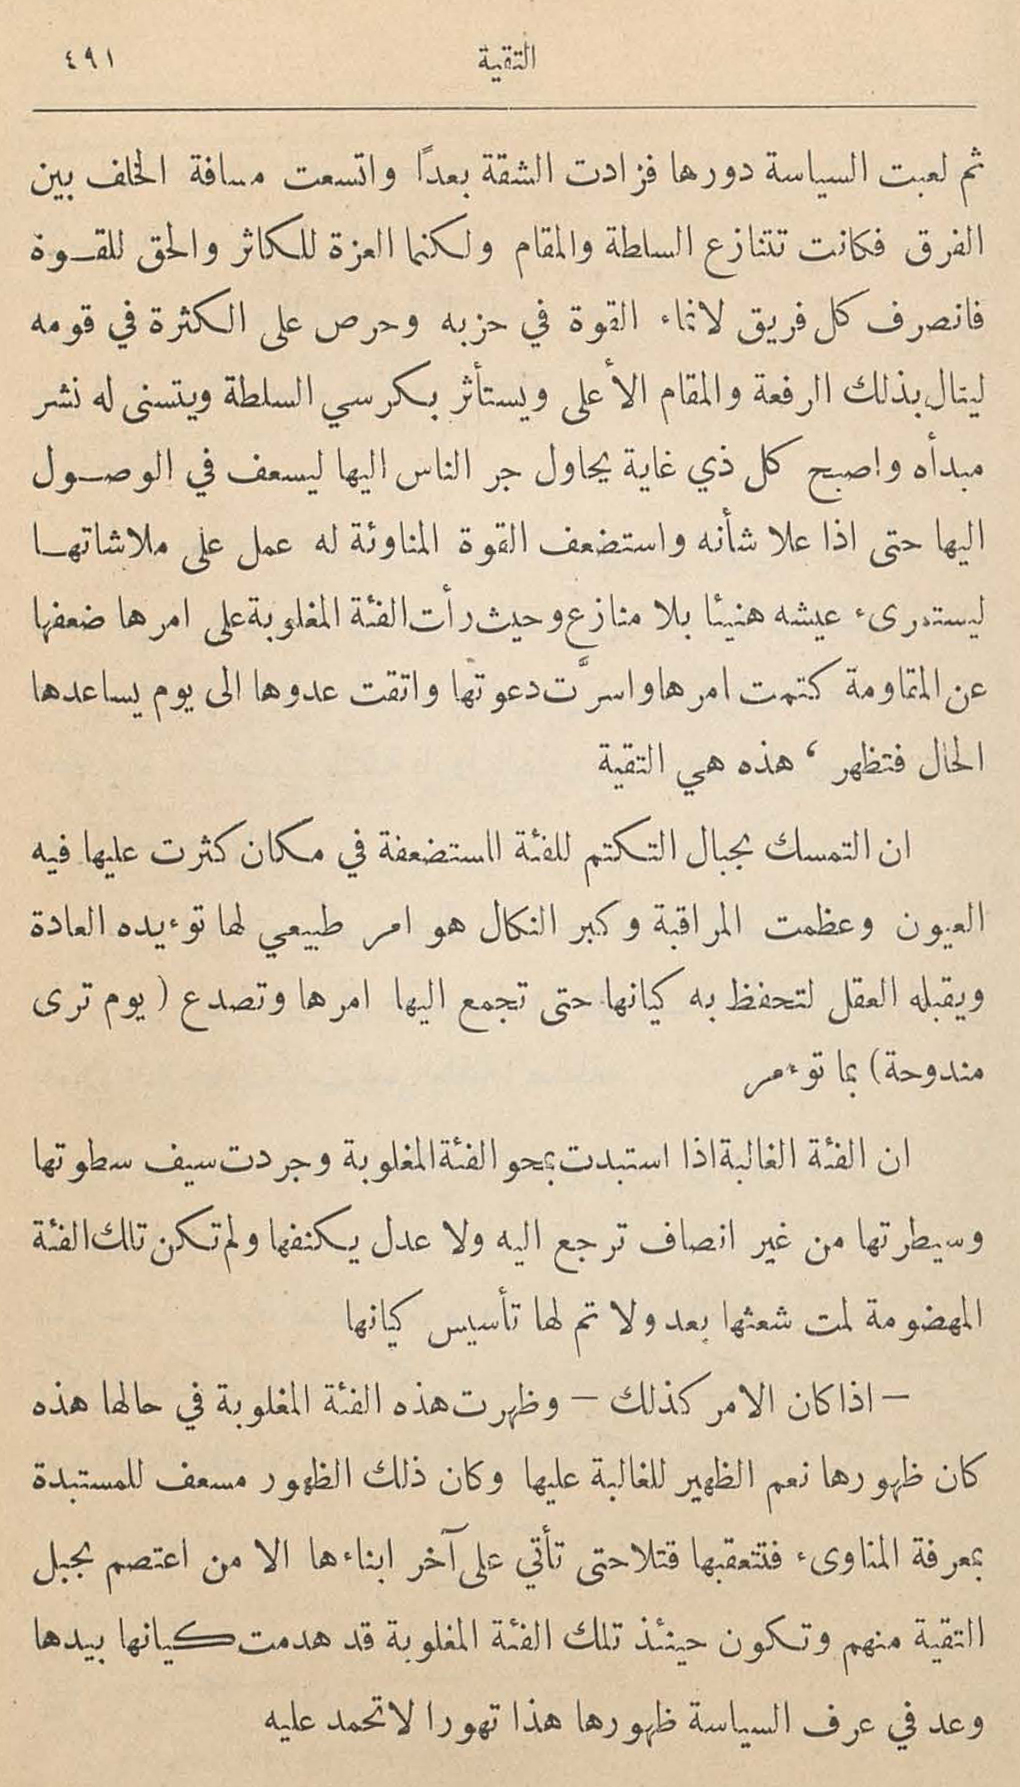 التقية ٤٩١
ثم لعبت السياسة دورها فزادت الشقة بعداً واتسعت مسافة الخلف بين
الفرق فكانت تتنازع السلطة والمقام ولكنما العزة للكاثر والحق للقوة
فانصرف كل فريق لانماء القوة في حزبه وحرص على الكثرة في قومه
لينال بذلك الرفعة والمقام الأعلى ويستأثر بكرسي السلطة ويتسنى له نشر
مبدأه واصبح كل ذي غاية يحاول جر الناس اليها ليسعف في الوصول
اليها حتى اذا علا شأنه واستضعف القوة المناوئة له عمل على ملاشاتها
ليستمرىء عيشه هنيئا بلا منازع وحيث رأت الفئة المغلوبة على امرها ضعفها
عن المقاومة كتمت امرها واسرَّت دعوتها واتقت عدوها الى يوم يساعدها
الحال فتظهر ، هذه هي التقية
ان التمسك بحبال التكتم للفئة المستضعفة في مكان كثرت عليها فيه
العيون وعظمت المراقبة وكبر النكال هو امر طبيعي لها توءيده العادة
ويقبله العقل لتحفظ به كيانها حتى تجمع اليها امرها وتصدع (يوم ترى
مندوحة) بما توءمر
ان الفئة الغالبة اذا استبدت بمحو الفئة المغلوبة وجردت سيف سطوتها
وسيطرتها من غير انصاف ترجع اليه ولا عدل يكنفها ولم تكن تلك الفئة
المهضومة لمت شعثها بعد ولا تم لها تأسيس كيانها
– اذا كان الامر كذلك – وظهرت هذه الفئة المغلوبة في حالها هذه
كان ظهورها نعم الظهير للغالبة عليها وكان ذلك الظهور مسعف للمستبدة
بمعرفة المناوىء فتتعقبها قتلا حتى تأتي على آخر ابناءها الا من اعتصم بحبل
التقية منهم وتكون حينئذ تلك الفئة المغلوبة قد هدمت كيانها بيدها
وعد في عرف السياسة ظهورها هذا تهورا لا تحمد عليه